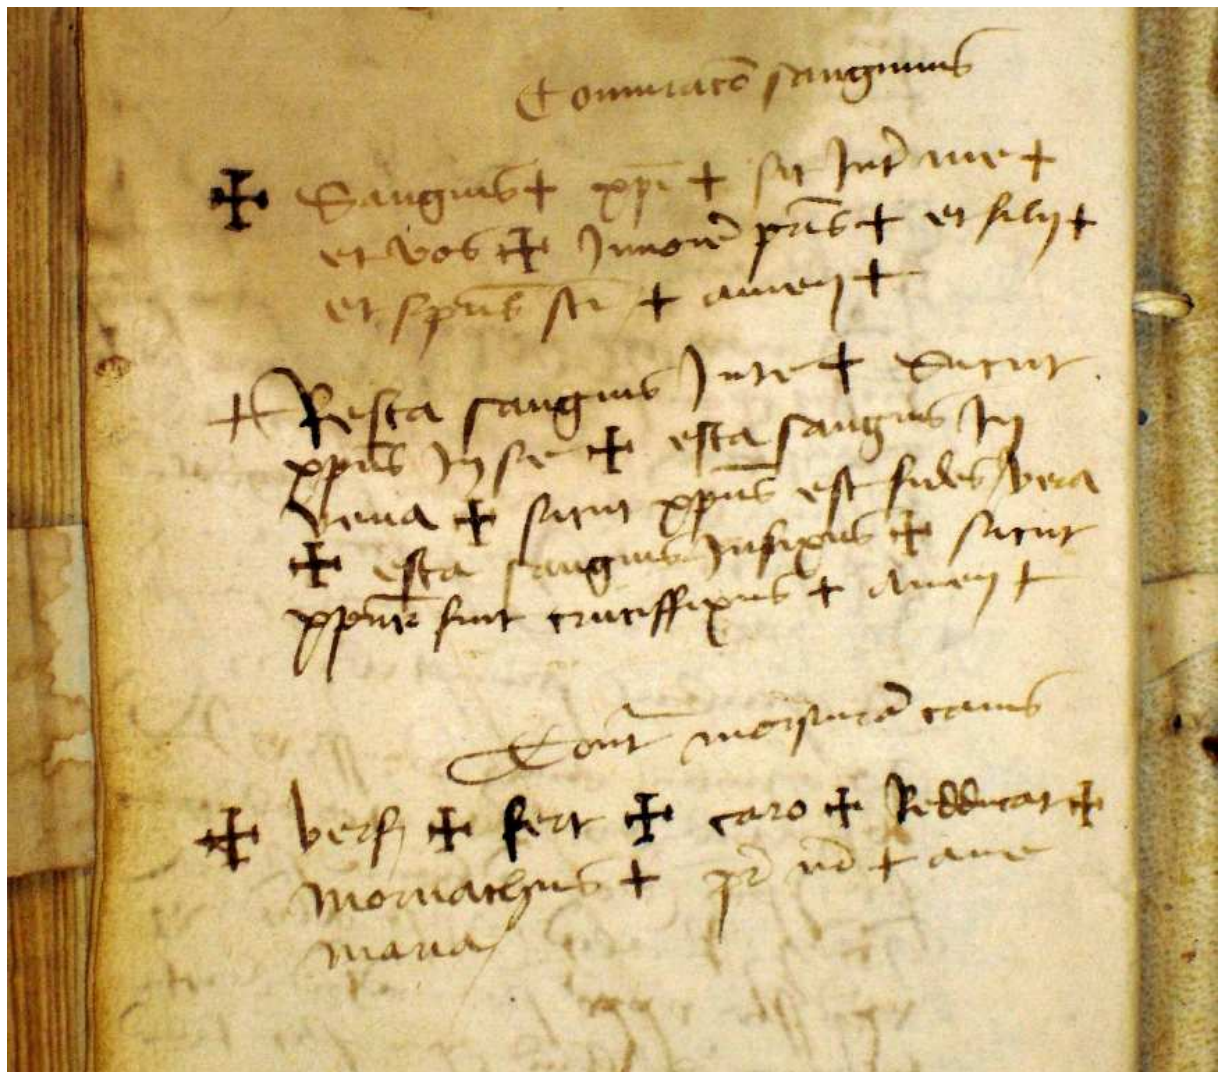 Coniuracō sanguinis
✠ Sanguis + xpī + sit Int̄ me +
et vos ✠ Innoīe p̄ris + et filij +
et sp̄us sc̄i + amen +
+ Resta sanguis Inte + Sicut
xp̄us In se ✠ esta sanguis In
vena ✠ sicut xp̄us est fides vera
✠ esta sanguis Infixus ✠ sicut
xp̄us fuit cruciffixus + Amen +
Cont̄ morsurā canis
✠ versſ ✠ fert ✠ caro ✠ Redducat ✠
Monachus + pr̄ nr̄ + ave
maria